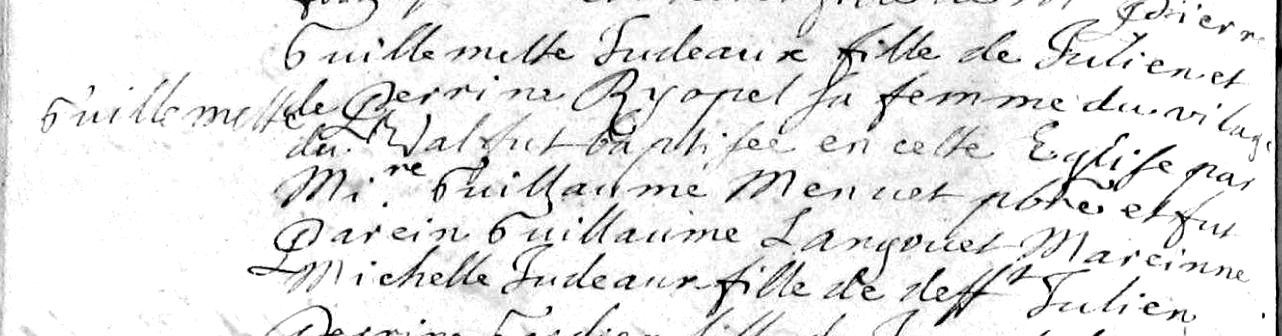 Guillemette Judeaux fille de Julien et
Guillemette
de Perrine Ryopel sa femme du vilage
du Val fut baptisée en cette Eglise par
Mi.re Guillaume Menuet pbre et fut
Parein Guillaume Langouet Mareinne
Michelle Judeaux fille de defft Julien
Perrine